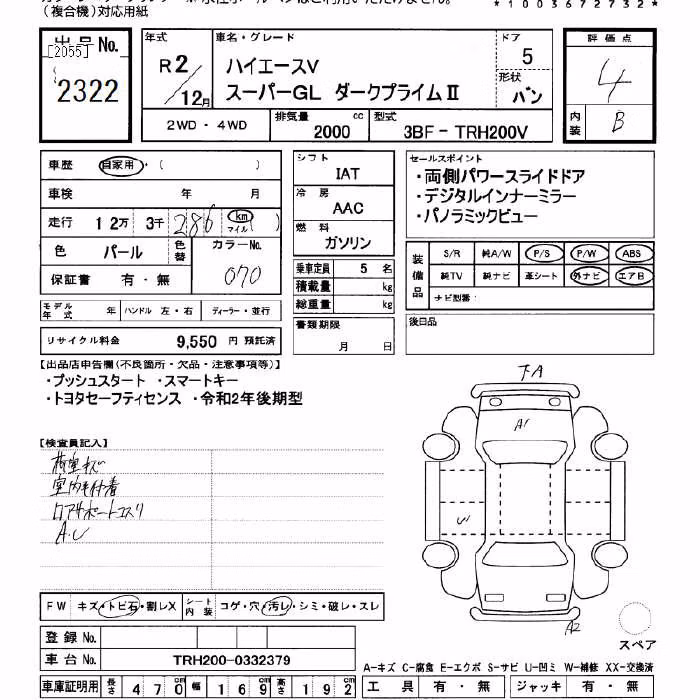 (複合機)対応用紙
*1003672732*
出品No.
[2055]
2322
年式
R2/12月
車名・グレード
ハイエースV
スーパーGL ダークプライムⅡ
ドア
5
形状
バン
評価点
4
内装
B
2WD・4WD
排気量
2000 cc
型式
3BF-TRH200V
車歴
自家用・( )
車検 年 月
走行 12万 3千 286 km マイル
色
パール
色替
カラーNo.
070
保証書 有・無
モデル年式 年 ハンドル 左・右 ディーラー・並行
リサイクル料金 9,550 円 預託済
シフト
IAT
冷房
AAC
燃料
ガソリン
乗車定員 5 名
積載量 kg
総重量 kg
書類期限
月 日
セールスポイント
・両側パワースライドドア
・デジタルインナーミラー
・パノラミックビュー
装備品
S/R 純A/W P/S P/W ABS
純TV 純ナビ 革シート 外ナビ エアB
ナビ型番:
後日品
【出品店申告欄(不良箇所・欠品・注意事項等)】
・プッシュスタート ・スマートキー
・トヨタセーフティセンス ・令和2年後期型
【検査員記入】
荷室キズ
室内毛付着
ロアサポートコスリ
A.U
下A
A1
U
A2
スペア
FW キズ・トビ石・割レX
シート内装 コゲ・穴・汚レ・シミ・破レ・スレ
登録No.
車台No. TRH200-0332379
車庫証明用 長さ 470 cm 幅 169 cm 高さ 192 cm
A-キズ C-腐食 E-エクボ S-サビ U-凹ミ W-補修 XX-交換済
工具 有・無 ジャッキ 有・無